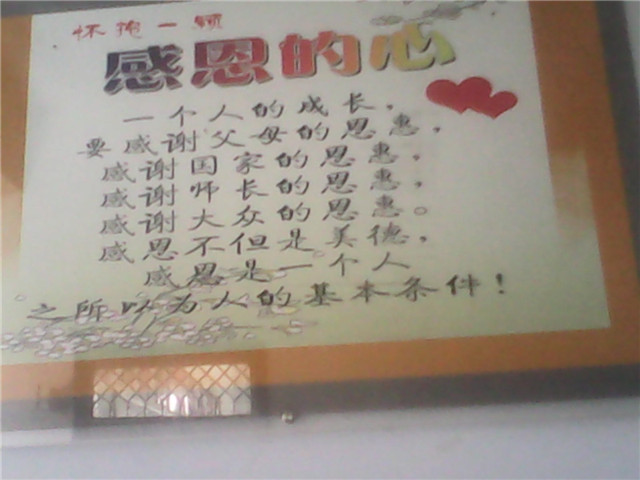 怀抱一颗
感恩的心
一个人的成长，
要感谢父母的恩惠，
感谢国家的恩惠，
感谢师长的恩惠，
感谢大众的恩惠。
感恩不但是美德，
感恩是一个人
之所以为人的基本条件！